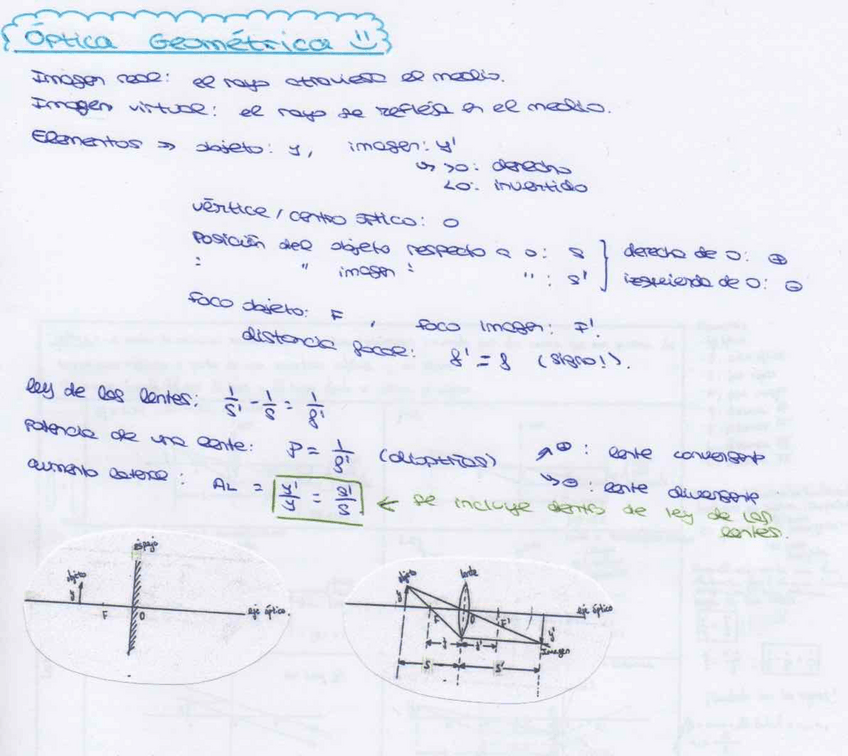 Óptica Geométrica
Imagen real: el rayo atraviesa el medio.
Imagen virtual: el rayo se refleja en el medio.
Elementos => objeto: y, imagen: y'
↳ >0: derecho
<0: invertido
vértice/centro óptico: O
Posición del objeto respecto a O: s } derecha de O: ⊕
" " imagen " ": s' } izquierda de O: ⊖
Foco objeto: F, foco imagen: F'.
distancia focal: f' = f (signo!).
ley de las lentes: 1/s' - 1/s = 1/f'
Potencia de una lente: P = 1/f' (dioptrías) ↗ ⊕: lente convergente
↘ ⊖: lente divergente
aumento lateral: AL = y'/y = s'/s ← se incluye dentro de ley de las
lentes.
espejo
objeto
y
F
O
eje óptico
objeto
lente
y
F
O
F'
eje óptico
y'
Imagen
f
f'
s
s'